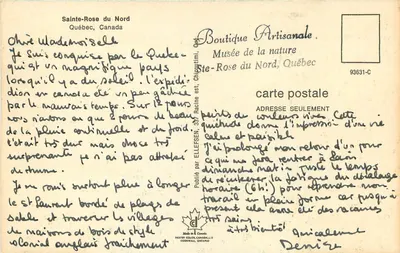 Sainte-Rose du Nord
Québec, Canada
Chère Mademoiselle
Je suis conquise par le Québec
qui est un magnifique pays
lorsqu'il y a du soleil. L'expédi-
tion en canoë été un peu gâchée
par le mauvais temps. Sur 12 jours
nous n'avons eu que 2 jours de beau
de la pluie continuelle et du froid
c'était très dur mais chose très
surprenante je n'ai pas attrapé
de rhume.
Je vais surtout plus à longer
le St Laurent bordé de plages de
sable et traverser les villages
de maisons de bois de style
colonial anglais fraîchement
Publié par ELLEFSEN,
Boutique Artisanale
Musée de la nature
Ste-Rose du Nord, Québec
93631-C
carte postale
ADRESSE SEULEMENT
peints de couleurs vives. Cette
quiétude donne l'impression d'une vie
calme et paisible
J'ai prolongé mon retour d'un jour
ce qui me fera rentrer à
dimanche matin juste le temps
de récupérer la fatigue du décalage
horaire (6h.) pour reprendre mon
travail en pleine forme car jusqu'à
présent cela a été des vacances
très saines
à très bientôt amicalement
Denise